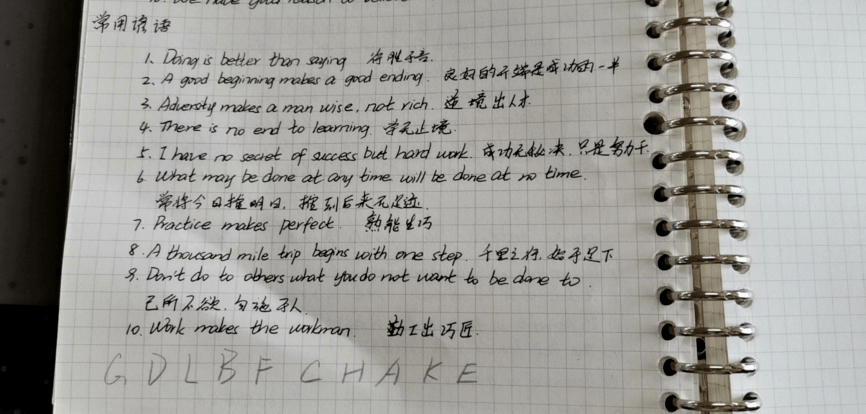 常用谚语
1. Doing is better than saying 行胜于言.
2. A good beginning makes a good ending. 良好的开端是成功的一半
3. Adversity makes a man wise, not rich. 逆境出人才.
4. There is no end to learning. 学无止境.
5. I have no secret of success but hard work. 成功无秘决, 只是努力干.
6 What may be done at any time will be done at no time.
常将今日推明日, 推到后来无足迹.
7. Practice makes perfect. 熟能生巧
8. A thousand mile trip begins with one step. 千里之行, 始于足下
9. Don't do to others what you do not want to be done to.
己所不欲, 勿施于人.
10. Work makes the workman. 勤工出巧匠.
G D L B F C H A K E